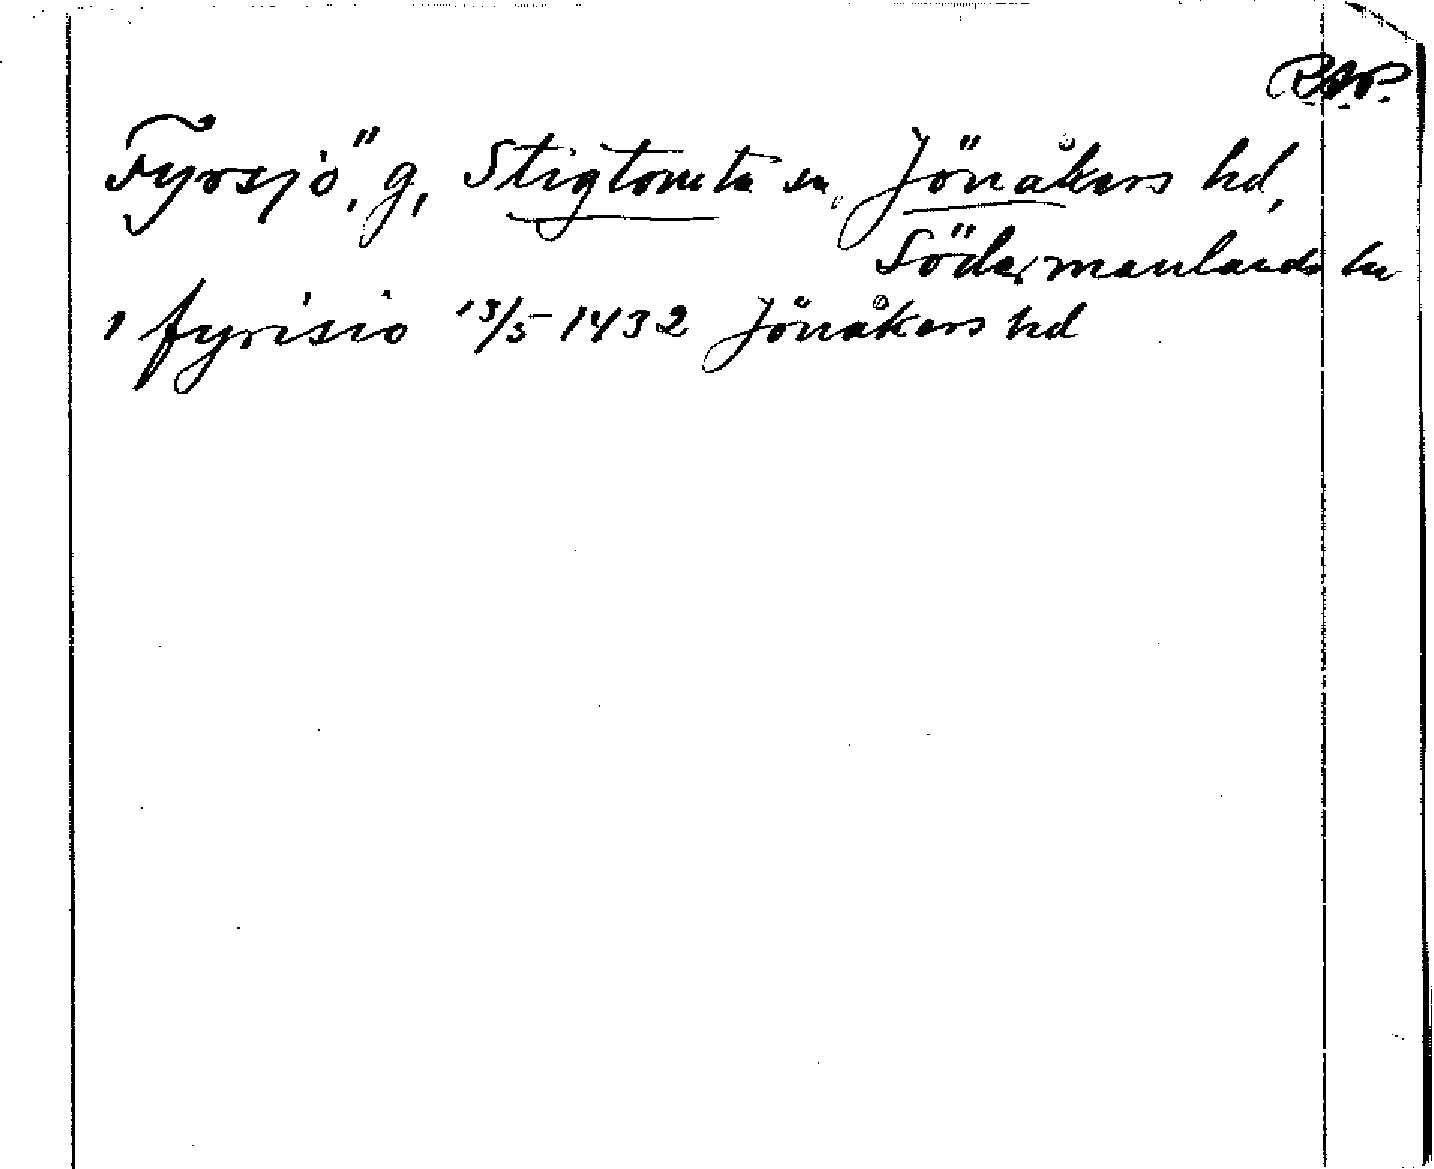 R.A.P.
Fyrsjö, g, Stigtomta sn, Jönåkers hd,
Södermanlands län
i fyrisio 13/5 1432 Jönåkers hd